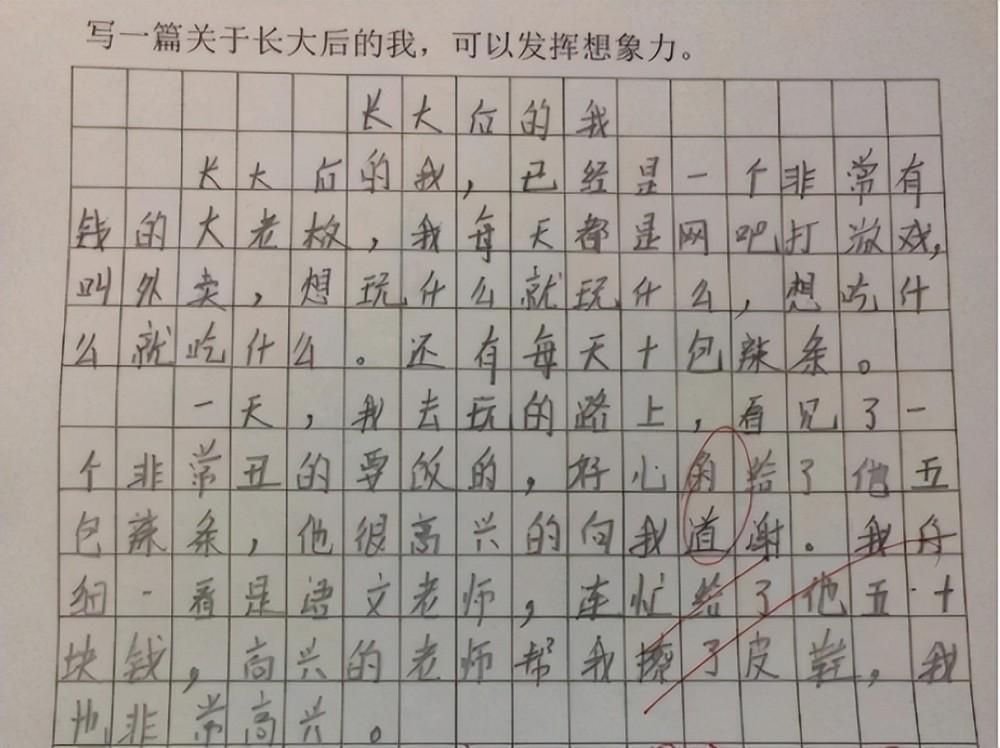 写一篇关于长大后的我，可以发挥想象力。
长大后的我
长大后的我，已经是一个非常有
钱的大老板，我每天都是网吧打游戏，
叫外卖，想玩什么就玩什么，想吃什
么就吃什么。还有每天十包辣条。
一天，我去玩的路上，看见了一
个非常丑的要饭的，好心的给了他五
包辣条，他很高兴的向我道谢。我仔
细一看是语文老师，连忙给了他五十
块钱，高兴的老师帮我擦了皮鞋，我
也非常高兴。